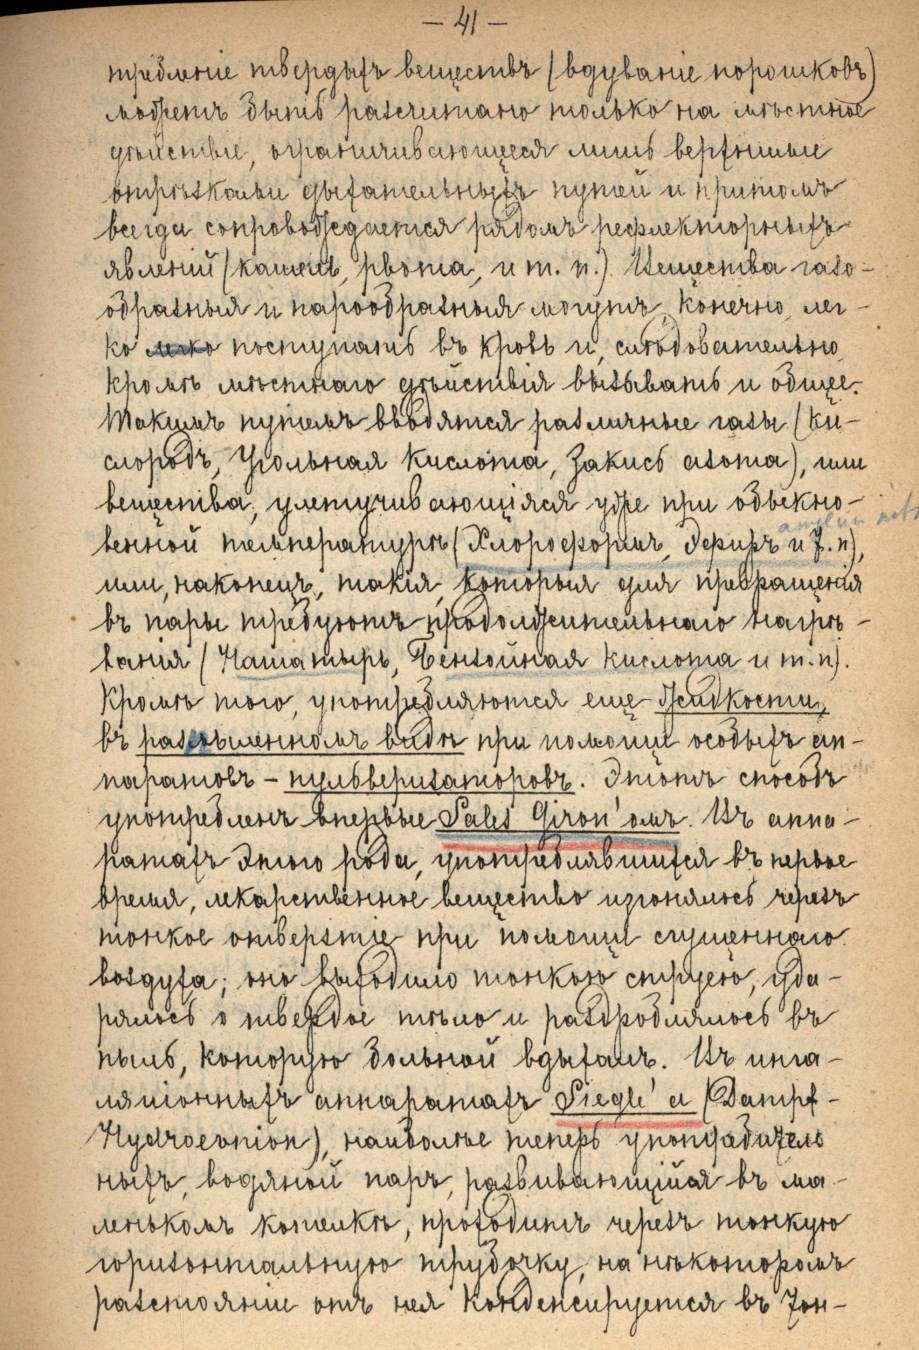 — 41 —
требленіе твердыхъ веществъ (вдуваніе порошковъ)
можетъ быть разсчитано только на мѣстное
дѣйствіе, ограничивающееся лишь верхними
отрѣзками дыхательныхъ путей и притомъ
всегда сопровождается рядомъ рефлекторныхъ
явленій (кашель, рвота, и т. п.). Вещества газо-
образныя и парообразныя могутъ, конечно, лег-
ко легко поступать въ кровь и, слѣдовательно,
кромѣ мѣстнаго дѣйствія вызывать и общее.
Такимъ путемъ вводятся различные газы (ки-
слородъ, Угольная кислота, Закись азота), или
вещества, улетучивающіяся уже при обыкно-
венной температурѣ (Хлороформъ, Эфиръ и т. п),
или, наконецъ, такія, которыя для превращенія
въ пары требуютъ продолжительнаго нагрѣ-
ванія (Нашатырь, Бензойная кислота и т. п).
Кромѣ того, употребляются еще Жидкости,
въ распыленномъ видѣ при помощи особыхъ ап-
паратовъ – пульверизаторовъ. Этотъ способъ
употребленъ впервые Sales Giron'омъ. Въ аппа-
ратахъ этого рода, употреблявшихся въ первое
время, лекарственное вещество изгонялось черезъ
тонкое отверзтіе при помощи сгущеннаго
воздуха; оно выходило тонкою струею, уда-
рялось о твердое тѣло и раздроблялось въ
пыль, которую больной вдыхалъ. Въ инга-
ляціонныхъ аппаратахъ Siegle'а (Dampf-
Hydroconion), наиболѣе теперь употребитель
ныхъ, водяной паръ, развивающійся въ ма-
ленькомъ котелкѣ, проходитъ черезъ тонкую
горизонтальную трубочку, на нѣкоторомъ
разстояніи отъ нея конденсируется въ тон-